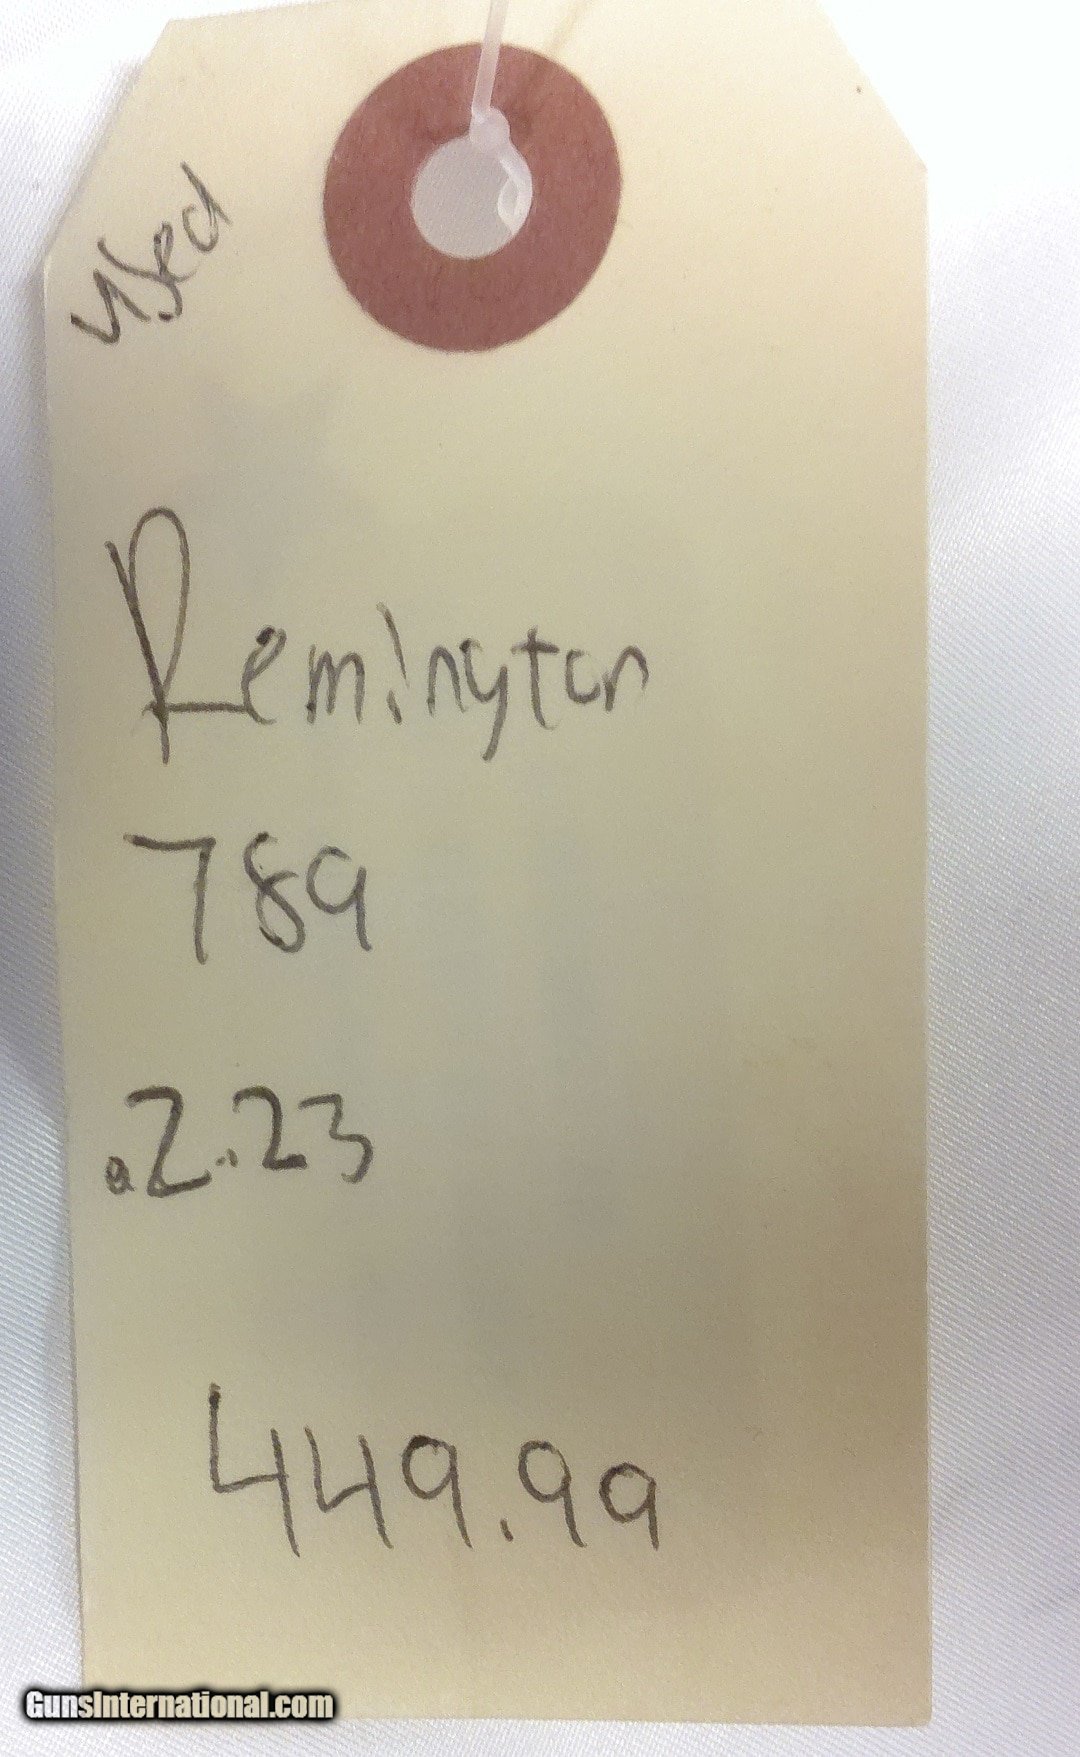 Used
Remington
789
.2.23
449.99
GunsInternational.com